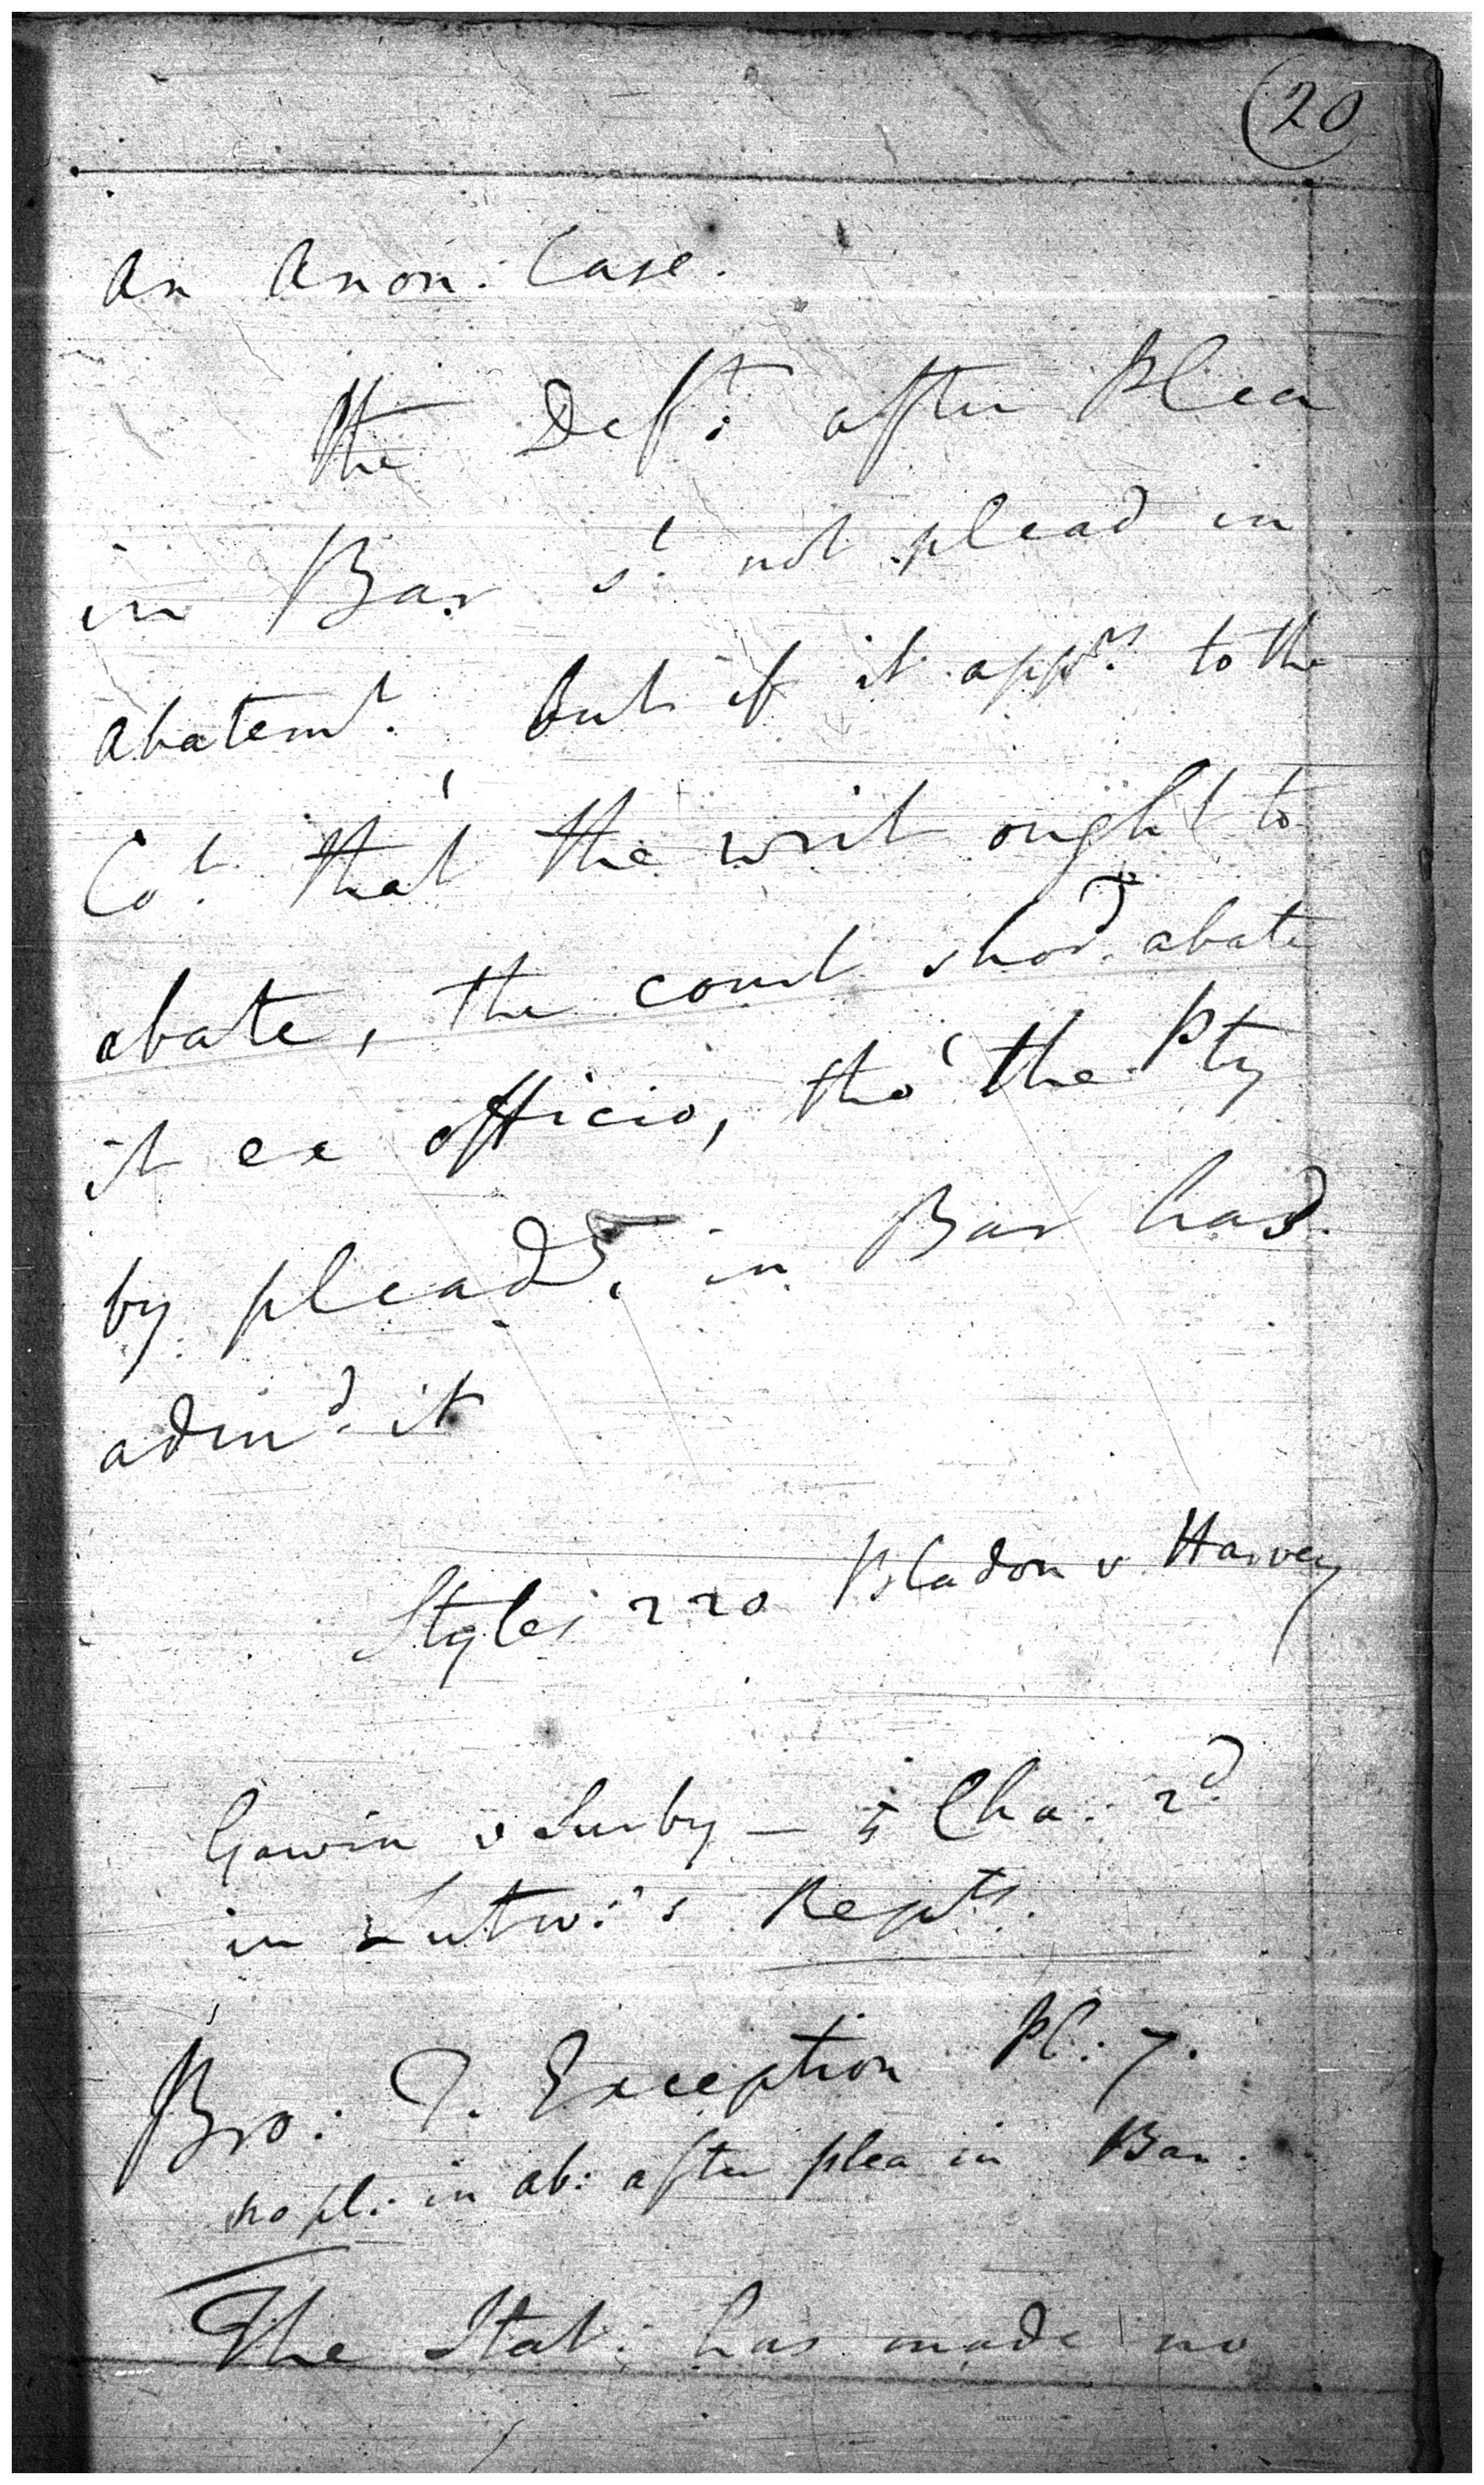 20
An Anon: Case.
the Deft: after Plea
in Bar sd. not plead in
abatemt. but if it apprs. to the
Cot. that the writ ought to
abate, the court shod. abate
it ex officio, tho' the Pty
by pleadg. in Bar had
admd. it
Styles 220 Bladon v Harvey
Gawin v Surby — 5 Cha: 2d.
in Lutw:'s Repts.
Bro: T. Exception Pl: 7.
no pl: in ab: after plea in Bar.
The Stat: has made no